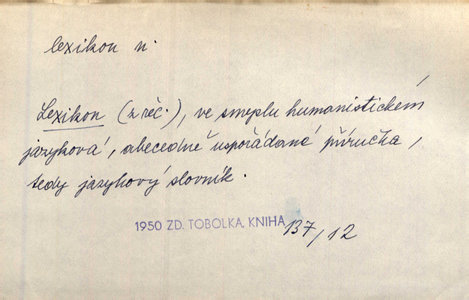 lexikon n.
Lexikon (z řéč.), ve smyslu humanistickém
jazyková, abecedně uspořádaná příručka,
tedy jazykový slovník.
1950 ZD. TOBOLKA, KNIHA
137/12